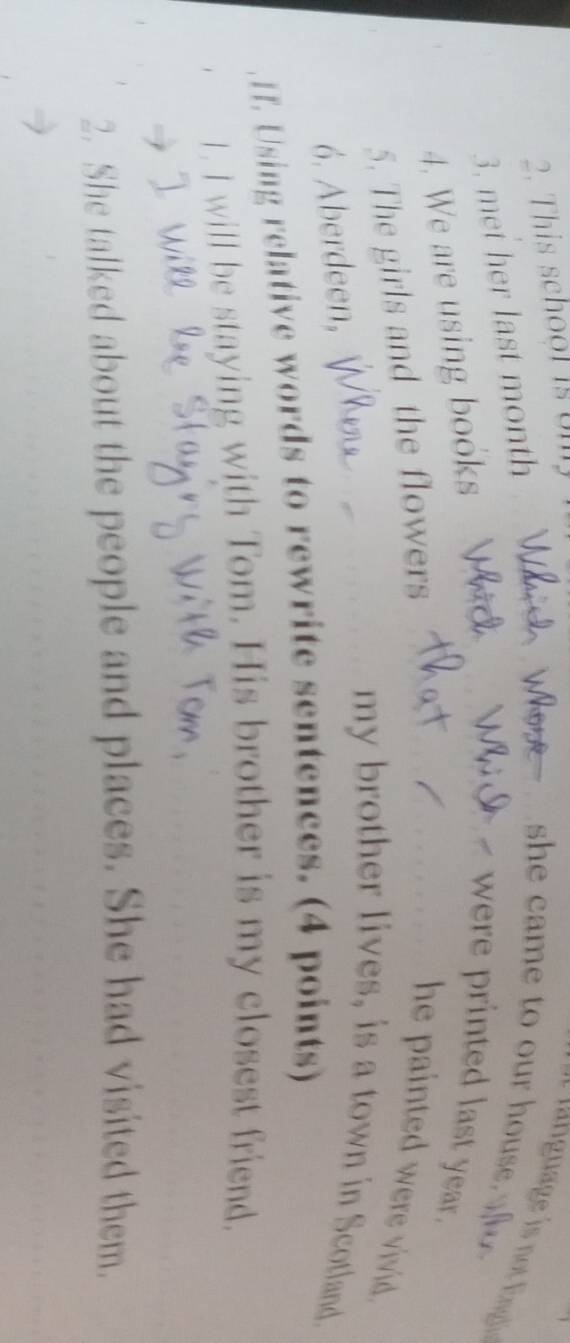 2. This school is only
language is not
3. met her last month Which whose she came to our house, when
4. We are using books which which were printed last year.
5. The girls and the flowers that he painted were vivid.
6. Aberdeen, Where my brother lives, is a town in Scotland.
II. Using relative words to rewrite sentences. (4 points)
1. I will be staying with Tom. His brother is my closest friend.
→ I will be staying with Tom,
2. She talked about the people and places. She had visited them.
→